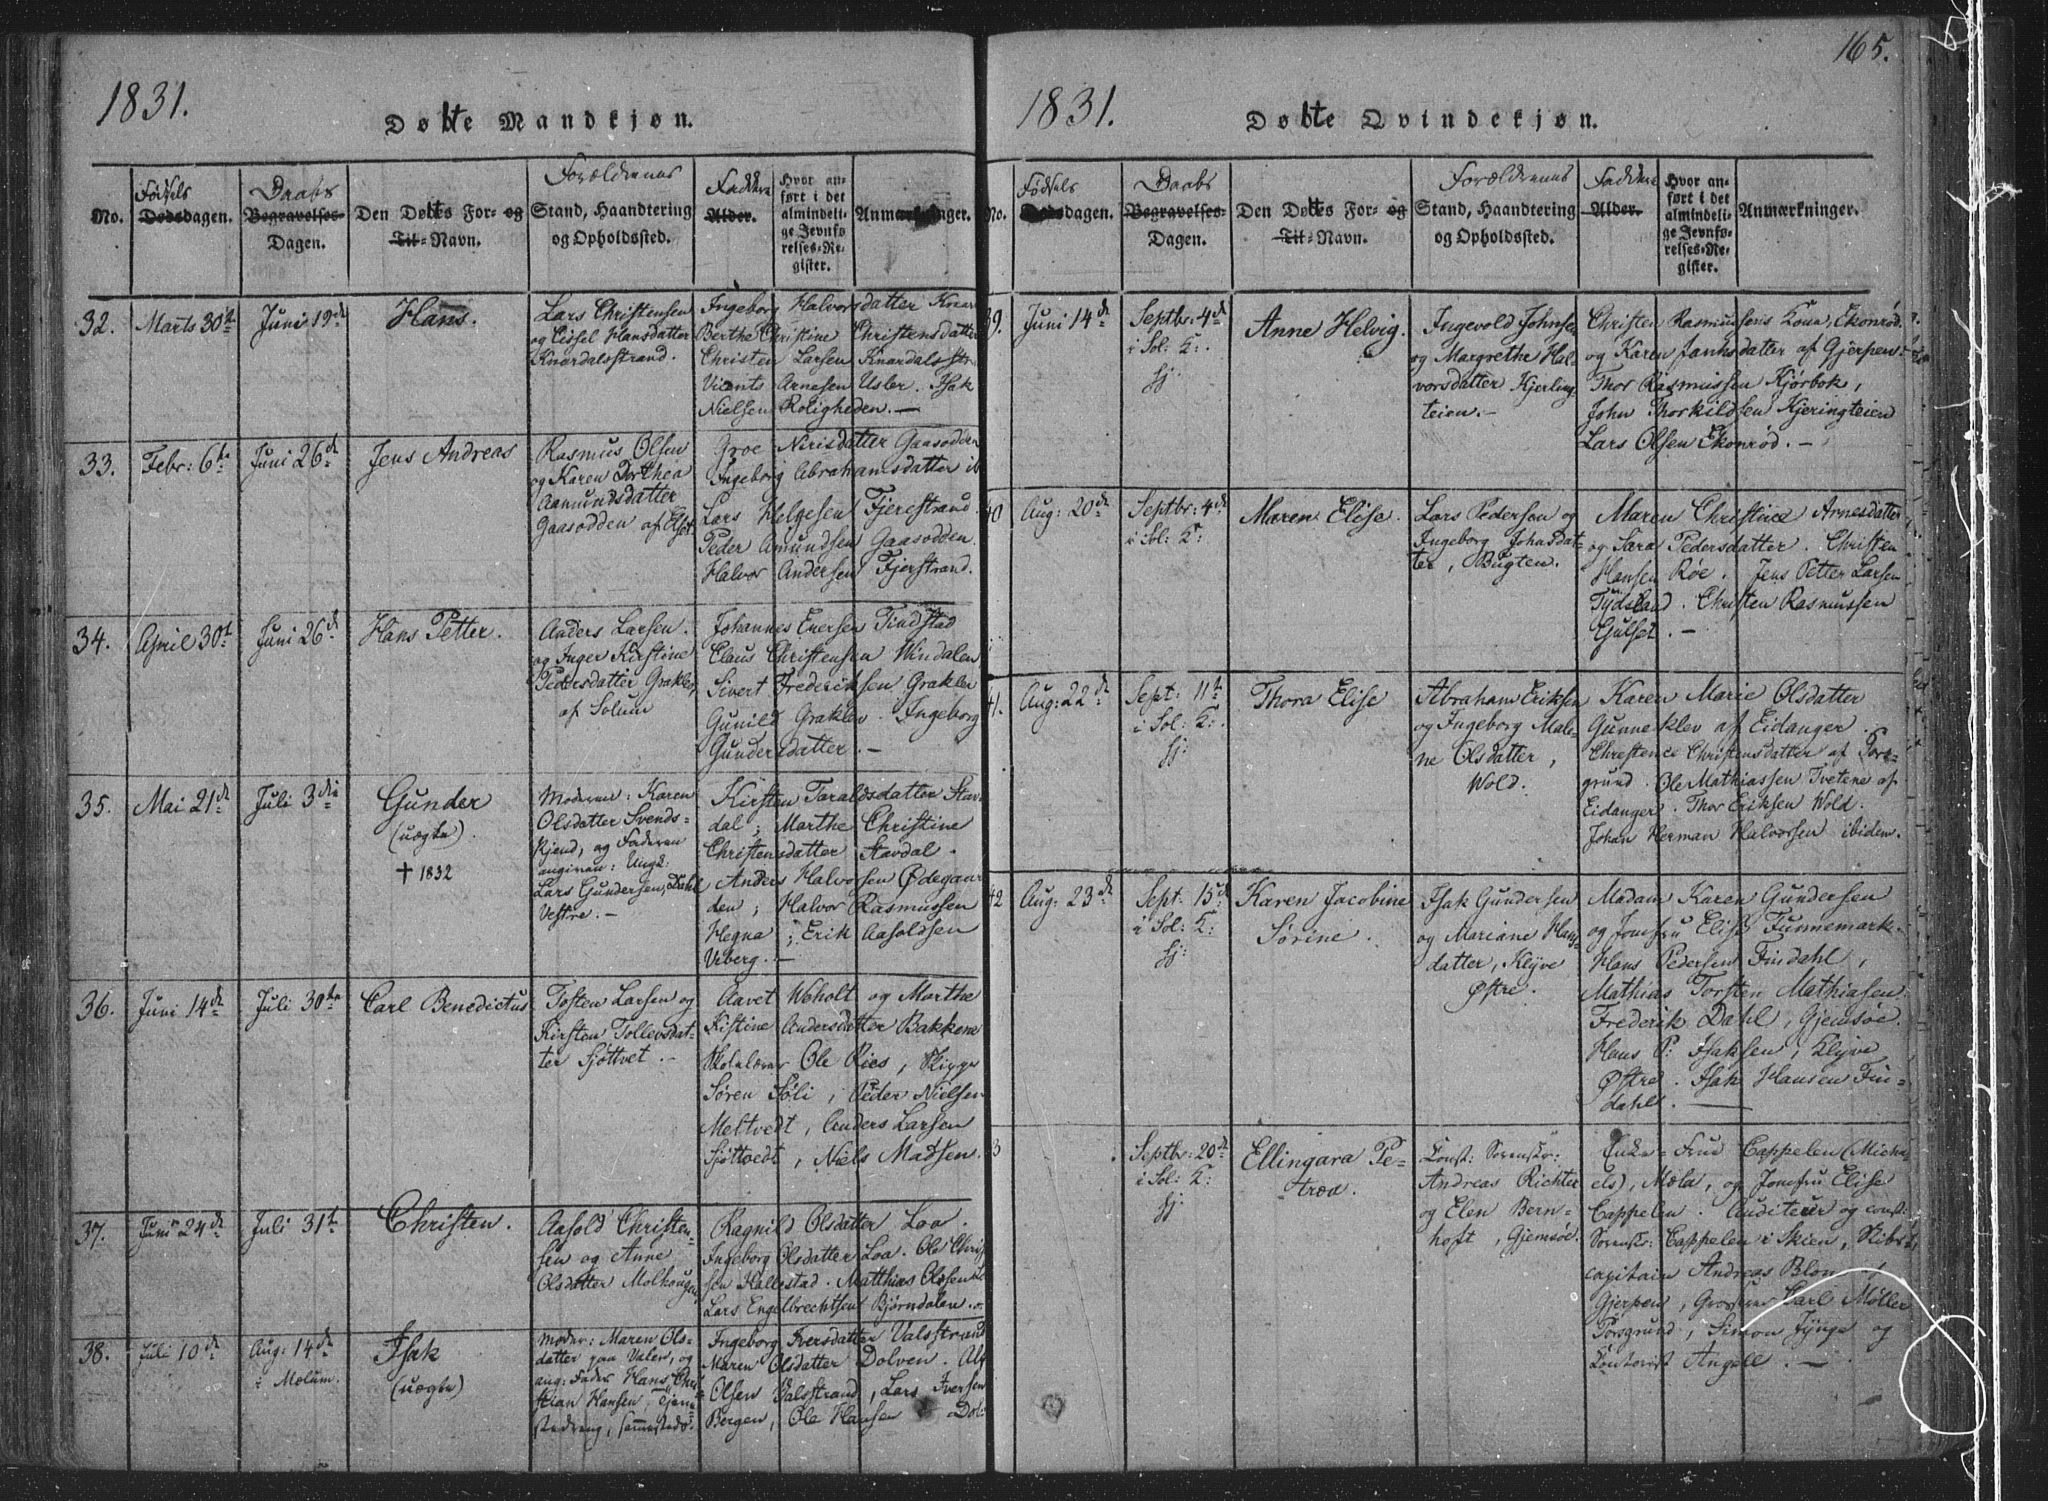 1831.
Døbte Mandkjøn.
No.
Fødsels
Dødsdagen.
Daabs
Begravelses-
Dagen.
Den Døbtes For- og
Til-Navn.
Forældrenes
Stand, Haandtering
og Opholdssted.
Faddere
Alder.
Hvor an-
ført i det
almindeli-
ge Jevnfø-
relses-Re-
gister.
Anmærkninger.
32.
Marts 30te
Juni 19de
Hans.
Lars Christensen
og Cissel Hansdatter
Knardalsstrand.
Ingeborg Halvorsdatter Knar
Berthe Christine Christensdatter
Christen Larsen Knardalsstr
Vicents Arnesen Usler. Isak
Nielsen Roligheden. —
33.
Febr: 6te
Juni 26de
Jens Andreas
Rasmus Olsen
og Karen Dorthea
Aamundsdatter
Gaasodden af Elst.
Groe Nirisdatter Gaasodden
Ingeborg Abrahamsdatter ib
Lars Helgesen Fjerestrand.
Peder Amundsen Gaasodden.
Halvor Andersen Fjerstrand.
34.
April 30te
Juni 26de
Hans Petter.
Anders Larsen.
og Inger Kirstine
Pedersdatter Graklev,
af Solum
Johannes Evensen Tindstad
Claus Christensen Windalen
Sivert Frederiksen Graklev
Gunild Graklev. Ingeborg
Gundersdatter. —
35.
Mai 21de
Juli 3die
Gunder
(uægte).
† 1832
Moderen: Karen
Olsdatter Svends-
kjend, og Faderen
angiven: Ungk:
Lars Gundersen, Dahl
Vestre. —
Kirsten Taraldsdatter Stav-
dal; Marthe Christine
Christensdatter Stavdal.
Anders Halvorsen Ødegaar-
den; Halvor Rasmussen
Hegna; Erik Aasoldsen
Veberg. —
36.
Juni 14de
Juli 30te
Carl Benedictus
Tosten Larsen og
Kirsten Tollevsdat-
ter Sjøttvet. —
Aavet Woholt og Marthe
Kistine Andersdatter Bakkene
Skolelærer Ole Ries, Skigge
Søren Søli, Peder Nielsen
Meltvedt, Anders Larsen
Sjøttvedt, Niels Madsen.
37.
Juni 24de
Juli 31te
Christen.
Aasold Christen-
sen og Anne
Olsdatter Molhougen
Ragnild Olsdatter Loa.
Ingeborg Olsdatter Loa. Ole Chris
sen Hallestad. Matthias Olssen
Lars Engelbrechtsen Bjørndalen.
38.
Juli 10de
Aug: 14de
i Mælum.
Isak
(uægte)
Moder: Maren Ols-
datter paa Valen, og
ang: Fader Hans Chri-
stian Hansen,
Ingeborg Iversdatter Valsstrand
Maren Olsdatter Dolven.
Olsen Valsstrand, Lars Iversen
Bergen, Ole Hansen Dol:
165.
1831.
Døbte Qvindekjøn.
No.
Fødsels
Dødsdagen.
Daabs
Begravelses-
Dagen.
Den Døbtes For- og
Til-Navn.
Forældrenes
Stand, Haandtering
og Opholdssted.
Faddere
Alder.
Hvor an-
ført i det
almindeli-
ge Jevnfø-
relses-Re-
gister.
Anmærkninger.
39.
Juni 14de
Septbr: 4de
i Sol: K:
hj:
Anne Helvig.
Ingevold Johnsen
og Margrethe Hal-
vorsdatter Kjerling-
teien. —
Christen Rasmusens Kona, Ekonrød.
og Karen Janhsdatter af Gjerpen:
Thor Rasmussen Kjørbok,
John Thorkildsen Kjeringteien
Lars Olsen Ekonrød. —
40
Aug: 20de
Septbr: 4de
i Sol: K:
Maren Elise.
Lars Pedersen og
Ingeborg Johnsdat-
ter, Bugten.
Maren Christine Arnesdatter
og Sara Pedersdatter. Christen
Hansen Røe. Jens Petter Larsen
Tydsland. Christen Rasmussen
Gulset. —
41.
Aug: 22de
Sept: 11te
i Sol: K:
hj:
Thora Elise
Abraham Eriksen
og Ingeborg Male-
ne Olsdatter,
Wold.
Karen Marie Olsdatter
Gunneklev af Eidanger.
Chrestence Christensdatter af Pors-
grund. Ole Mathiassen Tvetene af
Eidanger. Thor Eriksen Wold.
Johan Herman Halvorsen ibidem.
42
Aug: 23de
Sept: 15de
i Sol: K:
hj:
Karen Jacobine
Sørine.
Isak Gundersen
og Mariane Hans-
datter, Klyve
Østre.
Madam Karen Gundersen
og Jomfru Elise Funnemark.
Hans Pedersen Findahl,
Mathias Torsten Mathiasen.
Frederik Dahl, Gjemsøe.
Hans P: Isaksen, Klyve
Østre. Isak Hansen Fin-
dahl. —
3
Septbr: 20de
i Sol: K:
hj:
Ellingara Pe-
træa.
Const: Sorenskr:
Andreas Richter
og Elen Bern-
hoft, Gjemsøe.
Enke-Frue Cappelen (Micha-
els), Mæla, og Jomfru Elise
Cappelen. Auditeur og const:
Sorenskr: Cappelen i Skien, Skibs
capitain Andreas Blom af
Gjerpen, Grosserer Carl Møller
Porsgrund, Simon Jynge og
Contorist Angell. —